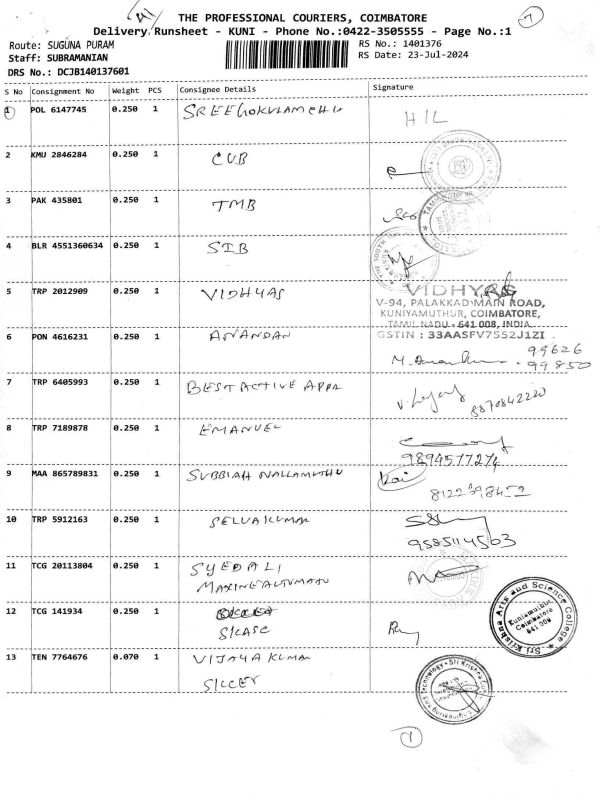 THE PROFESSIONAL COURIERS, COIMBATORE
Delivery Runsheet - KUNI - Phone No.:0422-3505555 - Page No.:1
Route: SUGUNA PURAM
RS No.: 1401376
Staff: SUBRAMANIAN
RS Date: 23-Jul-2024
DRS No.: DCJB140137601
S No Consignment No Weight PCS Consignee Details Signature
1 POL 6147745 0.250 1 SREEGOKULAM CHU
HIL
2 KMU 2846284 0.250 1 CUB
3 PAK 435801 0.250 1 TMB
4 BLR 4551360634 0.250 1 SIB
5 TRP 2012909 0.250 1 VIDHYAS
VIDHYAS
V-94, PALAKKAD MAIN ROAD,
KUNIYAMUTHUR, COIMBATORE,
TAMIL NADU - 641 008, INDIA
GSTIN : 33AASFV7552J1ZI
6 PON 4616231 0.250 1 ANANDAN
99626
99850
7 TRP 6405993 0.250 1 BEST ACTIVE APPA
8870842220
8 TRP 7189878 0.250 1 EMANUEL
9894577274
9 MAA 865789831 0.250 1 SUBBIAH NALLAMUTHU
Kai
10 TRP 5912163 0.250 1 SELVAKUMAR
9585114503
11 TCG 20113804 0.250 1 SYEDALI
12 TCG 141934 0.250 1
SKASC
Sri Krishna Arts and Science College
Kuniamuthur
Coimbatore
641 008
13 TEN 7764676 0.070 1 VIJAYA KUMAR
SKCET
1